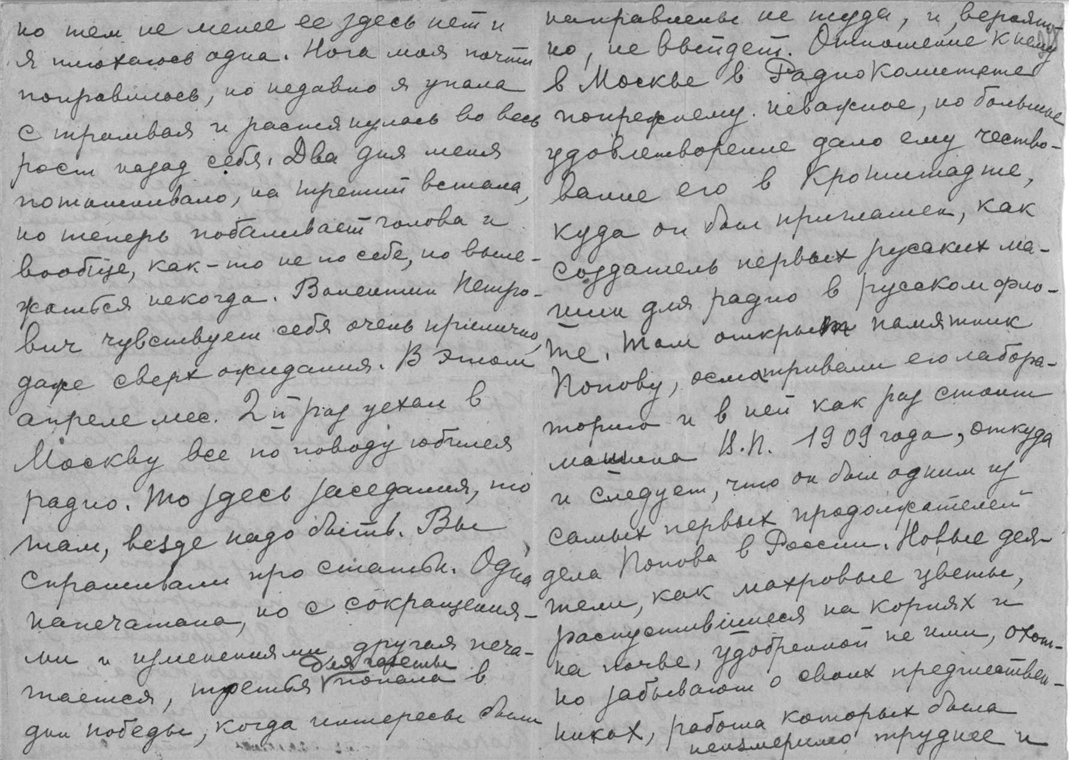 но тем не менее ее здесь нет и
я плюхаюсь одна. Нога моя почти
поправилось, но недавно я упала
с трамвая и растянулась во весь
рост назад себя. Два дня меня
поташнивало, на третий встала,
но теперь побаливает голова и
вообще, как-то не по себе, но выле-
жаться некогда. Валентин Петро-
вич чувствует себя очень прилично,
даже сверх ожидания. В этом
апреле мес. 2й раз уехал в
Москву все по поводу юбилея
радио. То здесь заседания, то
там, везде надо быть. Вы
спрашивали про статьи. Одна,
напечатана, но с сокращения-
ми и изменениями другая печа-
тается, третья для газеты попала в
дни победы, когда интересы были
направлены не туда, и, вероят-
но, не выйдет. Отношение к нему
в Москве в РадиоКомитете
попрежнему неважное, но большое
удовлетворение дало ему чество-
вание его в Кронштадте,
куда он был приглашен, как
создатель первых русских ма-
шин для радио в русском фло-
те. Там открыт памятник
Попову, осматривали его лабора-
торию и в ней как раз стоит
машина В.П. 1909 года, откуда
и следует, что он был одним из
самых первых продолжателей
дела Попова в России. Новые дея-
тели, как махровые цветы,
распустившиеся на корнях и
на почве, удобренной не ими, охот-
но забывают о своих предшествен-
никах, работа которых была
неизмеримо труднее и